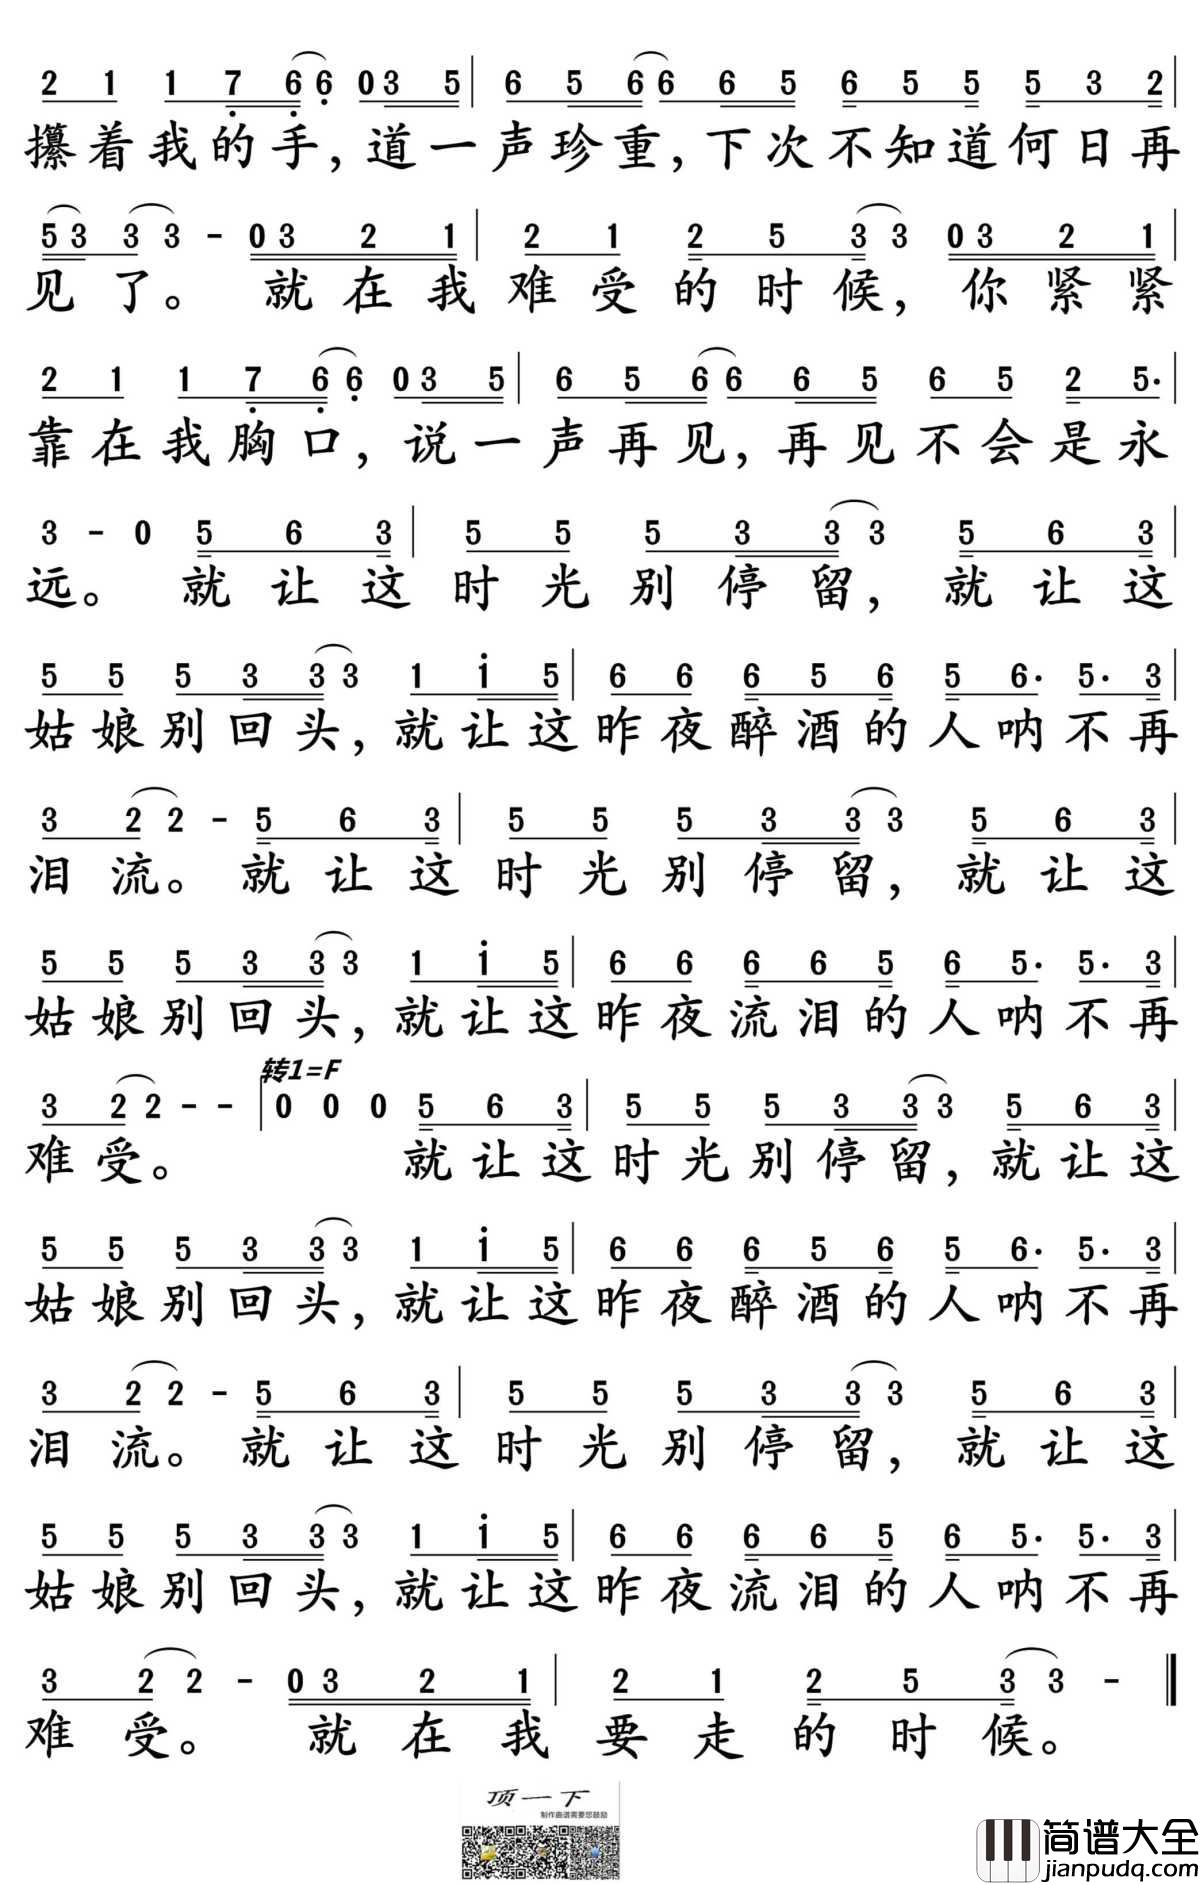 2 1 1 7 6 6 0 3 5 | 6 5 6 6 6 5 6 5 5 5 3 2 |
攥着我的手,道一声珍重,下次不知道何日再
5 3 3 3 - 0 3 2 1 | 2 1 2 5 3 3 0 3 2 1 |
见了。就在我难受的时候,你紧紧
2 1 1 7 6 6 0 3 5 | 6 5 6 6 6 5 6 5 2 5. |
靠在我胸口,说一声再见,再见不会是永
3 - 0 5 6 3 | 5 5 5 3 3 3 5 6 3 |
远。就让这时光别停留,就让这
5 5 5 3 3 3 1 1 5 | 6 6 6 5 6 5 6. 5. 3 |
姑娘别回头,就让这昨夜醉酒的人呐不再
3 2 2 - 5 6 3 | 5 5 5 3 3 3 5 6 3 |
泪流。就让这时光别停留,就让这
5 5 5 3 3 3 1 1 5 | 6 6 6 6 5 6 5. 5. 3 |
姑娘别回头,就让这昨夜流泪的人呐不再
转1=F
3 2 2 - - | 0 0 0 5 6 3 | 5 5 5 3 3 3 5 6 3 |
难受。就让这时光别停留,就让这
5 5 5 3 3 3 1 1 5 | 6 6 6 5 6 5 6. 5. 3 |
姑娘别回头,就让这昨夜醉酒的人呐不再
3 2 2 - 5 6 3 | 5 5 5 3 3 3 5 6 3 |
泪流。就让这时光别停留,就让这
5 5 5 3 3 3 1 1 5 | 6 6 6 6 5 6 5. 5. 3 |
姑娘别回头,就让这昨夜流泪的人呐不再
3 2 2 - 0 3 2 1 | 2 1 2 5 3 3 -
难受。就在我要走的时候。
顶一下
制作曲谱需要您鼓励
简谱大全
jianpudq.com